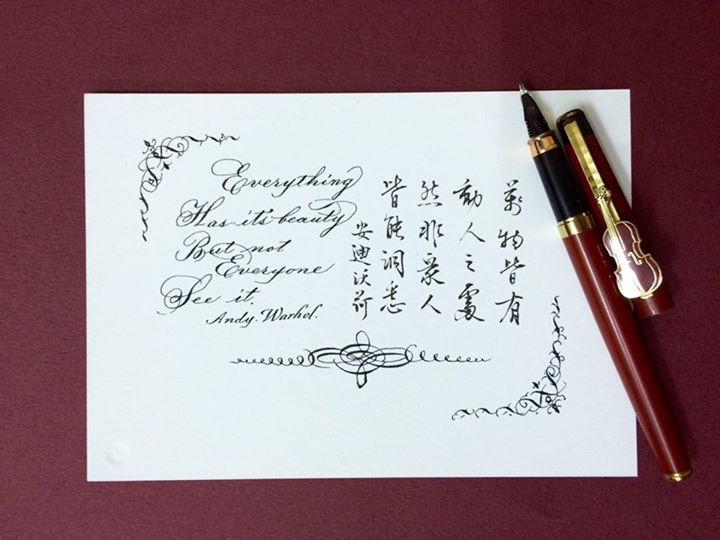 Everything
Has it's beauty
But not
Everyone
See it.
Andy. Warhol.
萬物皆有
動人之處
然非眾人
皆能洞悉
安迪沃荷